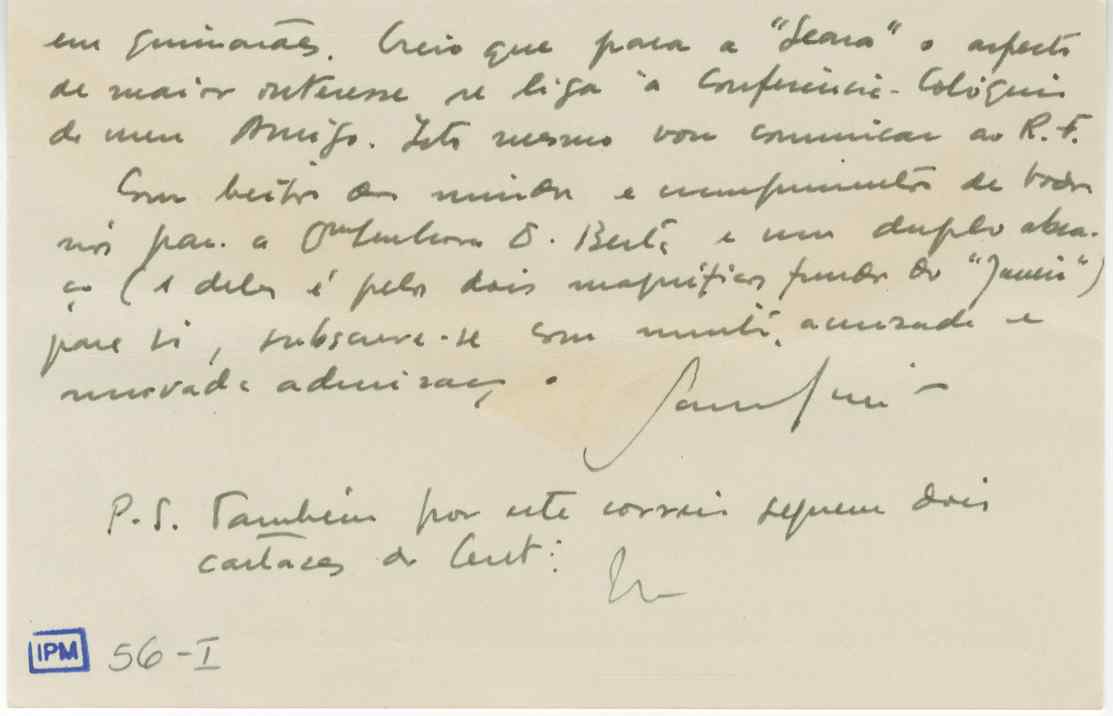 em Guimarães. Creio que para a "Seara" o aspecto
de maior interesse se liga à Conferência-Colóquio
do meu Amigo. Isto mesmo vou comunicar ao R. F.
Com beijos aos miúdos e cumprimentos de todos
nós para a D. Berta e um duplo abra-
ço (1 deles é pelos dois magníficos fundos do "Janeiro")
para si, subscreve-se com muita amizade e
renovada admiração.
P.S. Também por este correio seguem dois
cartazes do Cent:
IPM 56-I